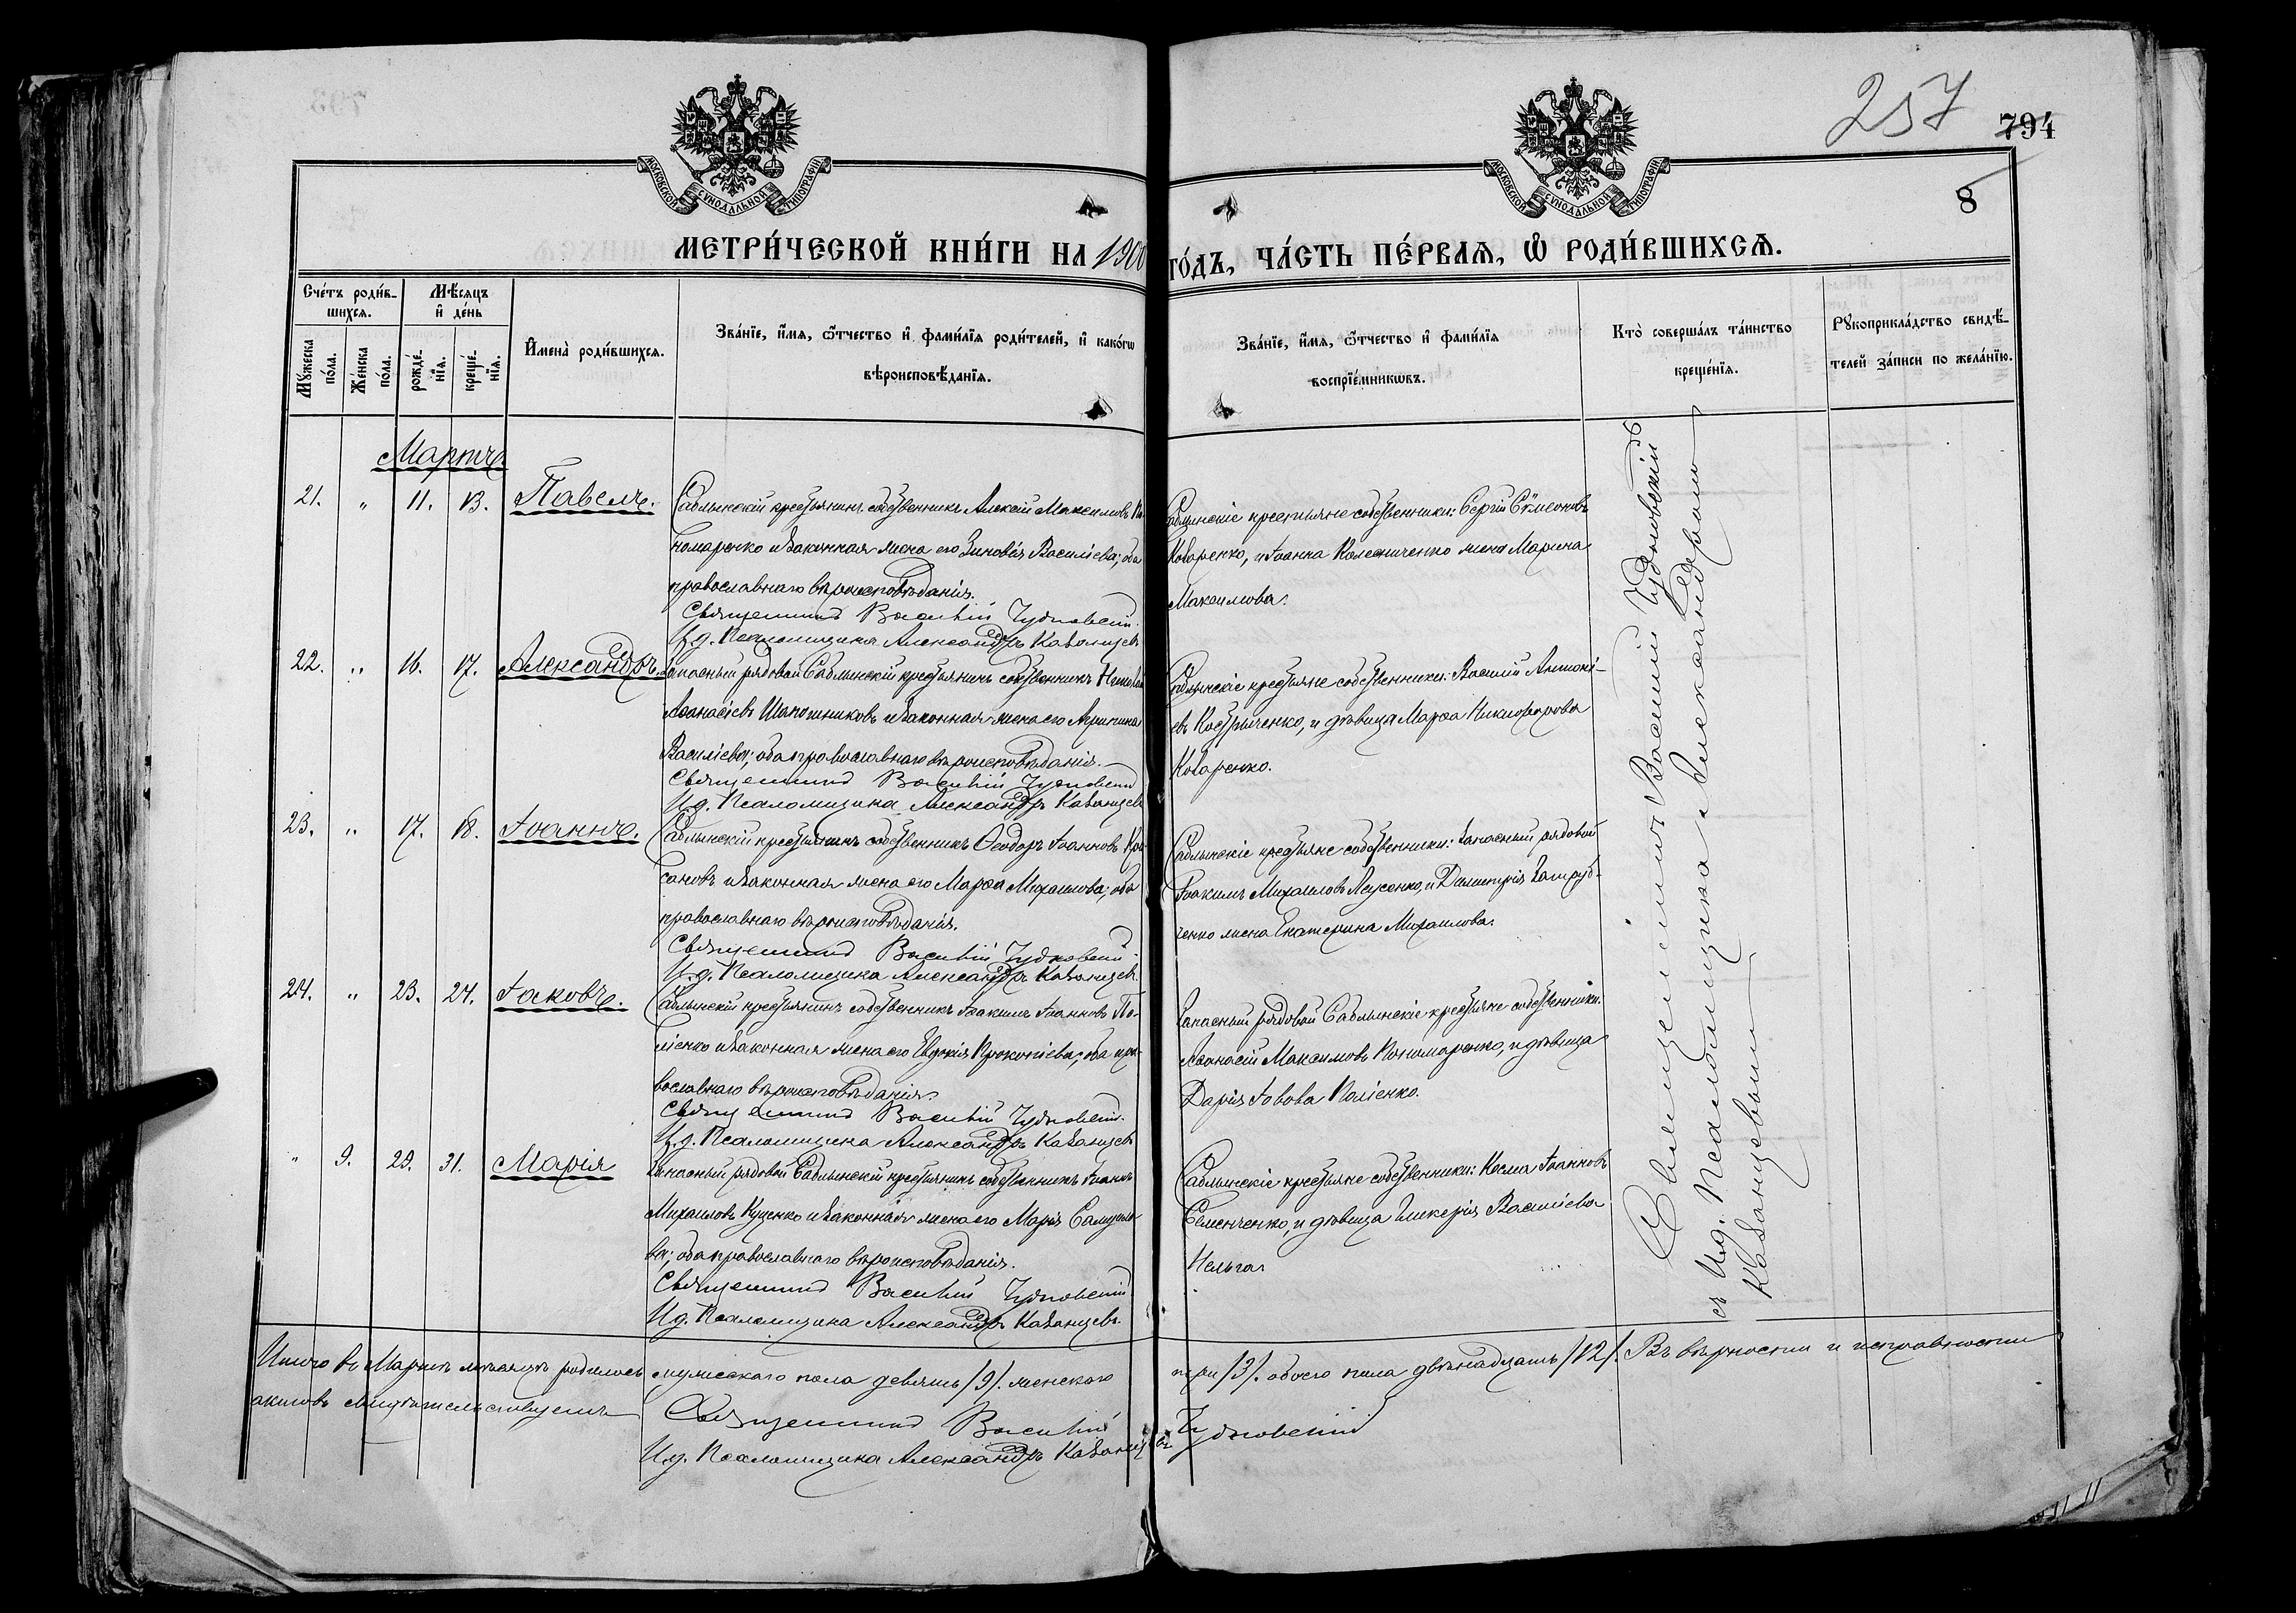 257
794
8
МОСКОВСКОЙ СѴНОДАЛЬНОЙ ТИПОГРАФІИ
МОСКОВСКОЙ СѴНОДАЛЬНОЙ ТИПОГРАФІИ
МЕТРИ́ЧЕСКОЙ КНИ́ГИ НА 1900 ГО́ДЪ, ЧА́СТЬ ПЕ́РВАѦ, Ѡ҆ РОДИ́ВШИХСѦ.
Сче́тъ роди́в-
шихсѧ.
Мꙋ́жеска по́ла.
Же́нска по́ла.
Мѣ́сѧцъ
и҆ де́нь
рожде́нїѧ.
креще́нїѧ.
И҆мена̀ роди́вшихсѧ.
Зва́нїе, и҆́мѧ, ѻ҆́тчество и҆ фами́лїѧ роди́телей, и҆ како́гѡ
вѣроисповѣ́данїѧ.
Зва́нїе, и҆́мѧ, ѻ҆́тчество и҆ фами́лїѧ
воспрїе́мникѡвъ.
Кто̀ соверша́лъ та́инство
креще́нїѧ.
Рꙋкоприкла́дство свидѣ́-
телей за́писи по жела́нїю.
Мартъ
21. " 11. 13. Павелъ.
Саблынскій крестьянинъ собственникъ Алексій Максимовъ По-
номаренко и законная жена его Зиновія Василіева; оба
православнаго вѣроисповѣданія.
Священникъ Василій Чудновскій.
И.д. Псаломщика Александръ Казанцевъ
Саблынскіе крестьяне собственники: Сергій Сѵмеоновъ
Козаренко, и Іоанна Колесниченко жена Марина
Максимова.
22. " 16. 17. Александръ.
Запасный рядовой Саблынскій крестьянинъ собственникъ
Аѳанасіевъ Шапошниковъ и законная жена его Агрипина
Василіева; оба православнаго вѣроисповѣданія.
Священникъ Василій Чудновскій
И.д. Псаломщика Александръ Казанцевъ
Саблынскіе крестьяне собственники: Василій Антоні-
евъ Костриченко, и дѣвица Марѳа Никифорова
Козаренко.
23. " 17. 18. Іоаннъ.
Саблынскій крестьянинъ собственникъ Ѳеодоръ Іоанновъ
сановъ и законная жена его Марѳа Михаилова; оба
православнаго вѣроисповѣданія.
Священникъ Василій Чудновскій
И.д. Псаломщика Александръ Казанцевъ.
Саблынскіе крестьяне собственники: Запасный рядовой
Іоакимъ Михаиловъ Лысенко, и Димитрія
ченко жена Екатерина Михаилова.
24. " 23. 24. Іаковъ.
Саблынскій крестьянинъ собственникъ Іоакимъ Іоанновъ По-
ліенко и законная жена его Евдокія Прокопіева; оба пра-
вославнаго вѣроисповѣданія.
Священникъ Василій Чудновскій.
И.д. Псаломщика Александръ Казанцевъ
Запасный рядовой Саблынскіе крестьяне собственники:
Аѳанасій Максимовъ Пономаренко, и дѣвица
Дарія Іовова Поліенко.
" 9. 29. 31. Марія
Запасный рядовой Саблынскій крестьянинъ собственникъ Іоаннъ
Михаиловъ Куценко и законная жена его Марія Самуило-
ва; оба православнаго вѣроисповѣданія.
Священникъ Василій Чудновскій
И.д. Псаломщика Александръ Казанцевъ.
Саблынскіе крестьяне собственники: Косма Іоанновъ
Семенченко, и дѣвица Гликерія Василіева
Священникъ Василій Чудновскій
съ И.д. Псаломщика Александромъ
Казанцевымъ
Итого въ Мартѣ мѣсяцѣ родилось мужескаго пола девять /9/. женскаго три /3/. обоего пола двѣнадцать /12/. Въ вѣрности и исправности
актовъ свидѣтельствуемъ
Священникъ Василій Чудновскій
И.д. Псаломщика Александръ Казанцевъ